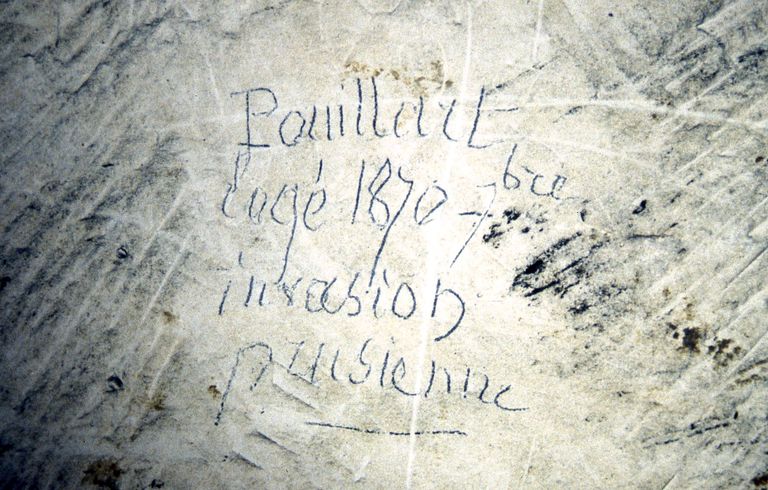 Pouillart
logé 1870-7bre
invasion
prusienne